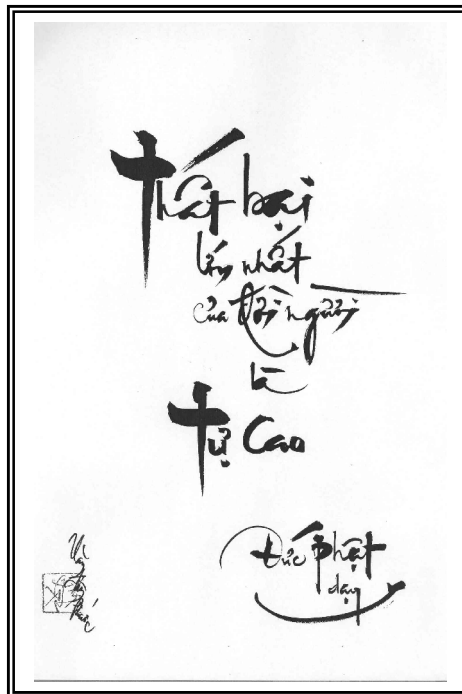 Thất bại
lớn nhất
của đời người
là
Tự Cao
Đức Phật
dạy